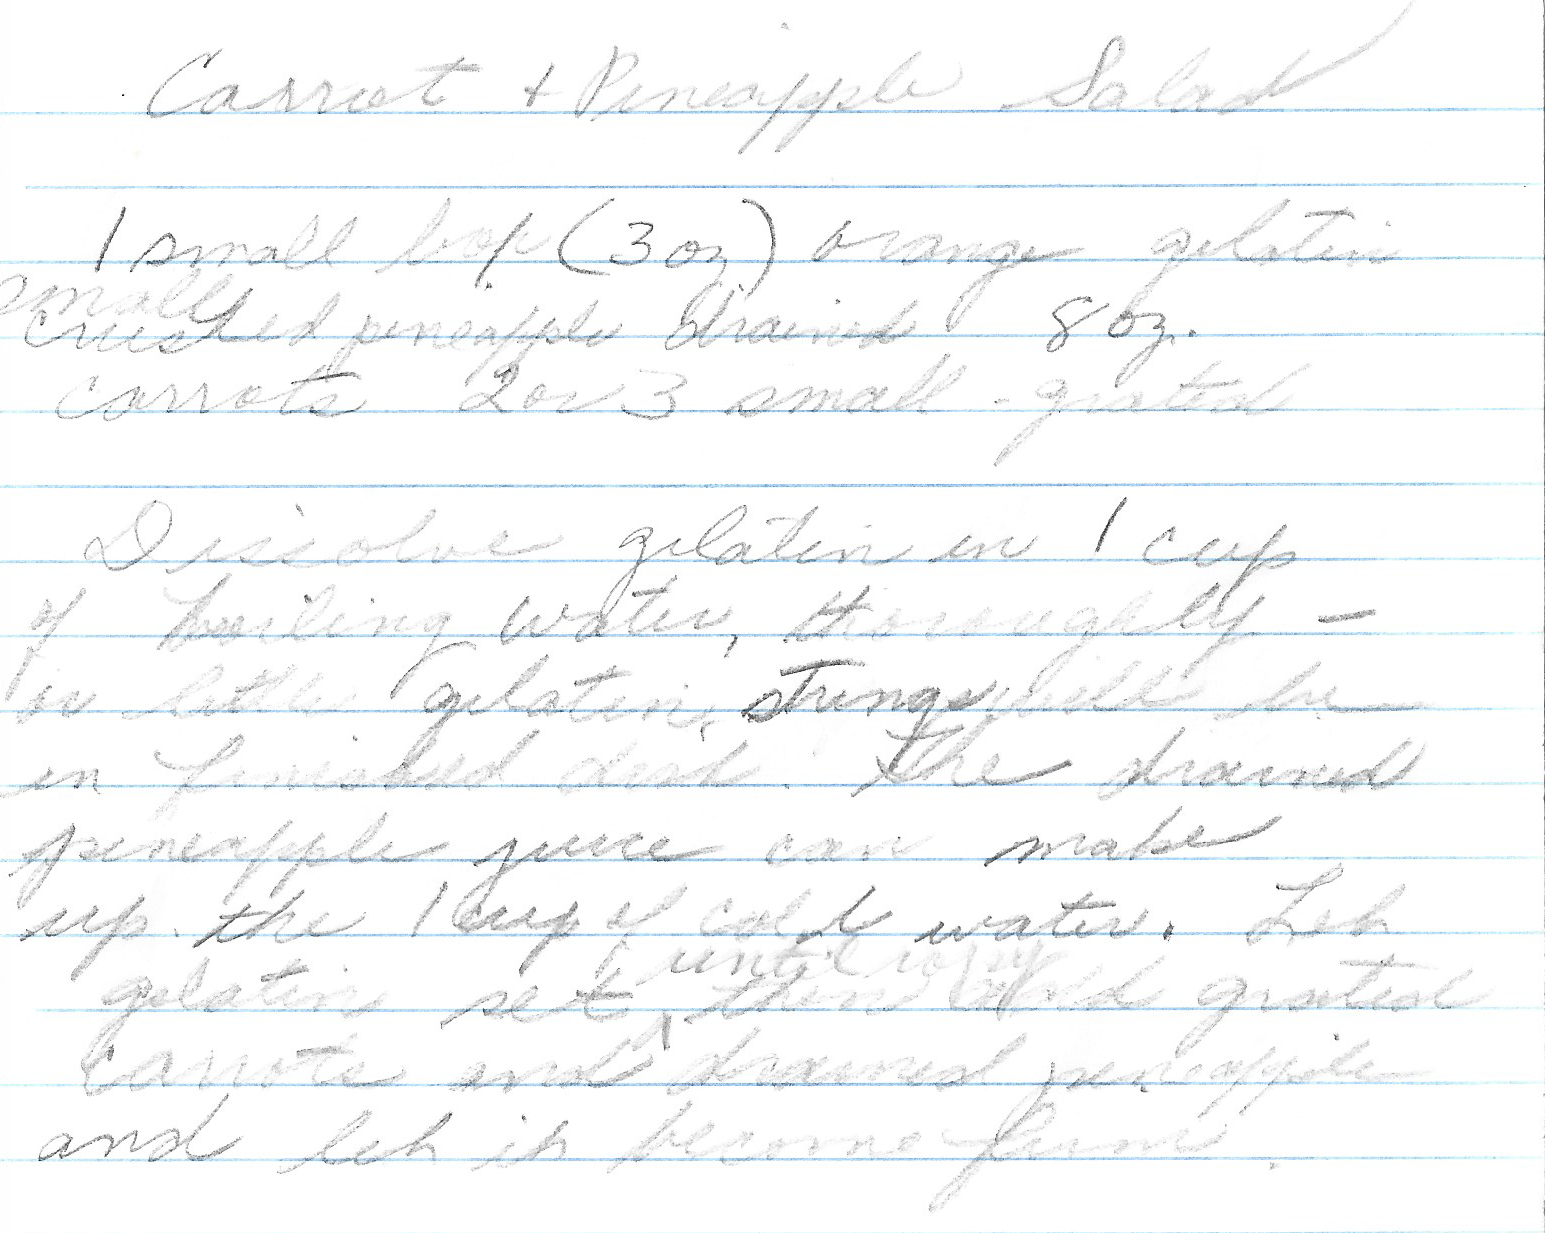 Carrot + Pineapple Salad
1 small box (3 oz) orange gelatin
small
crushed pineapple drained 8 oz.
carrots 2 or 3 small - grated
Dissolve gelatin in 1 cup
of boiling water, thoroughly —
or little gelatin strings will be
in finished dish. The drained
pineapple juice can make
up the 1 cup of cold water. Let
until ropy
gelatin set ^ then add grated
carrots and drained pineapple
and let it become firm.